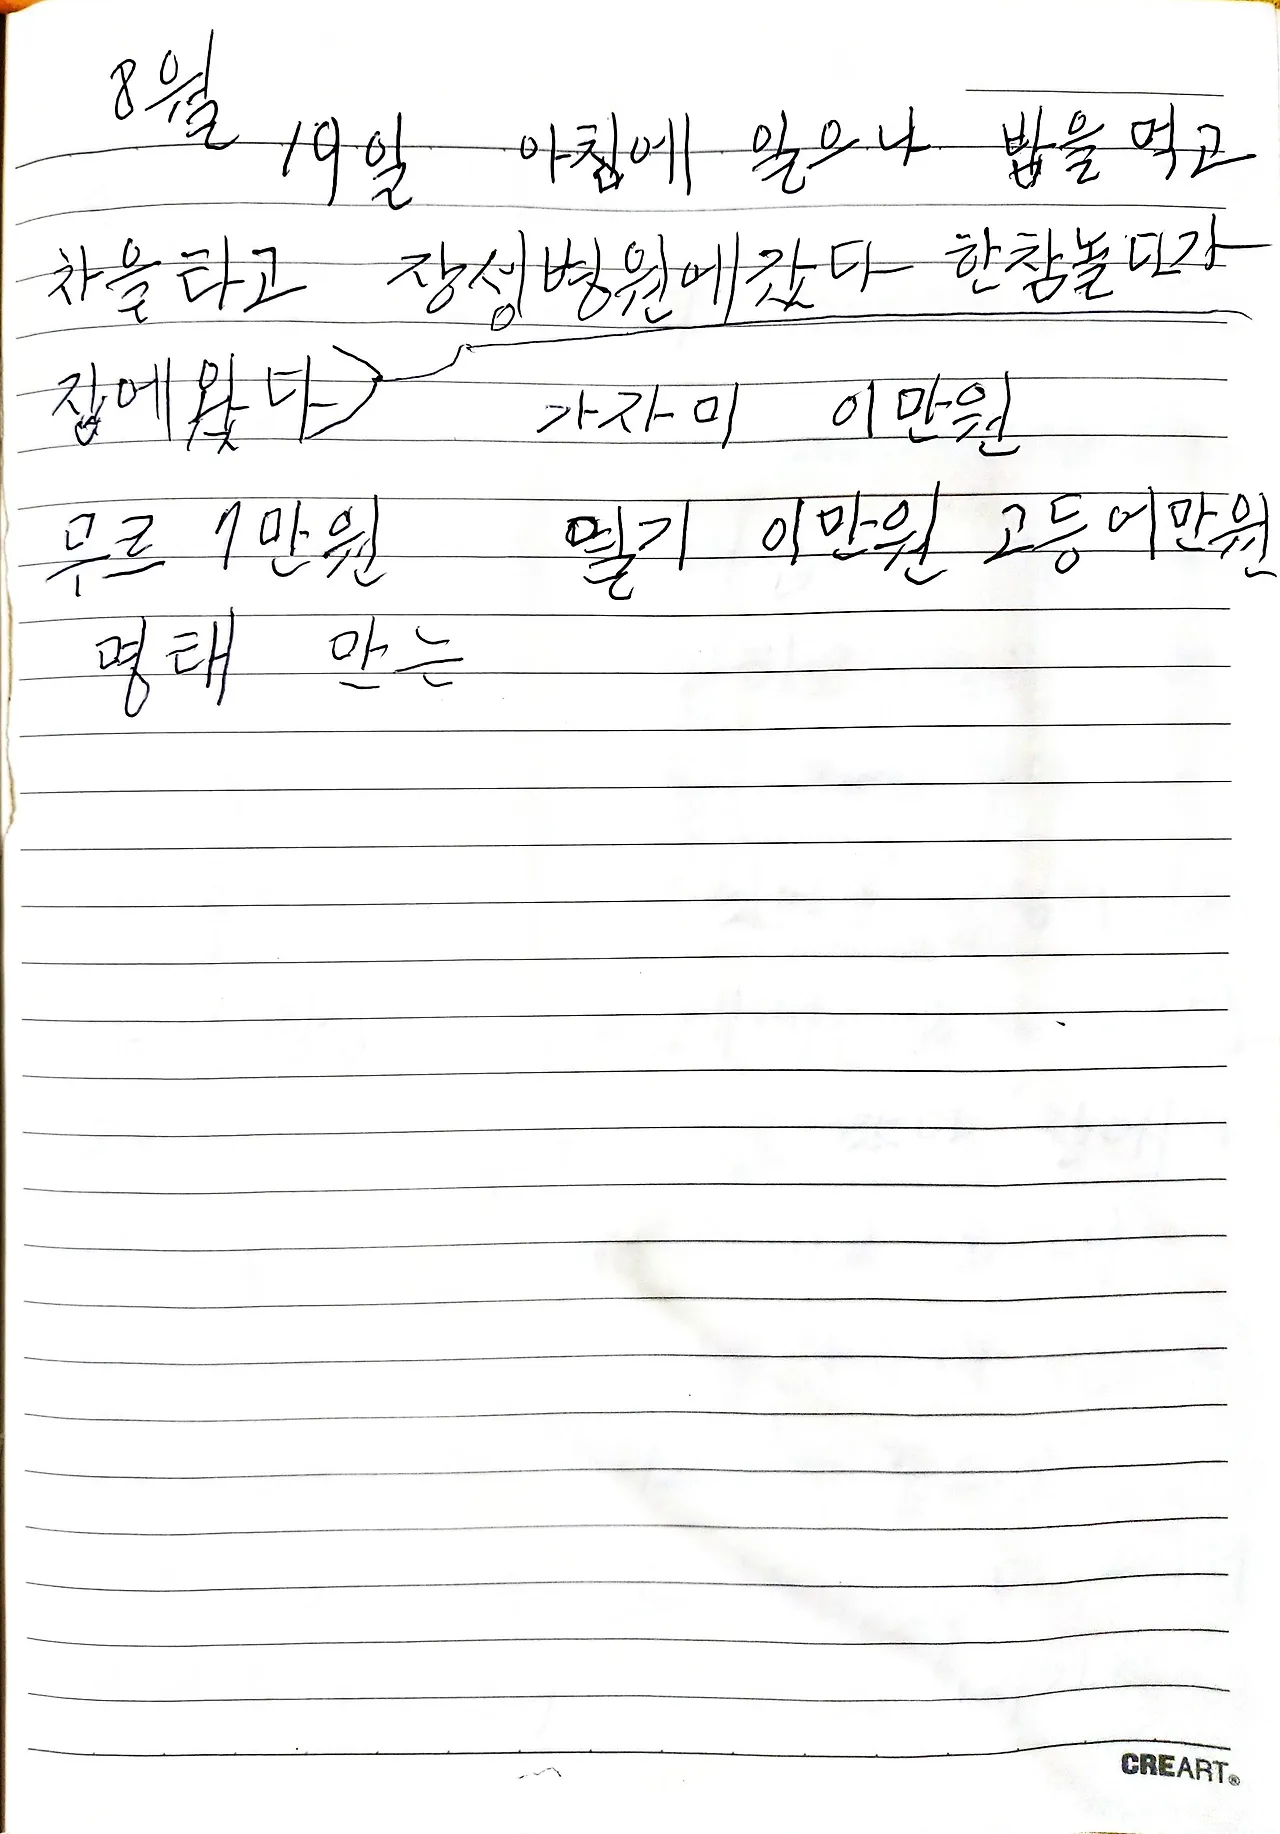 8월
19일 아침에 일으나 밥을 먹고
차을 타고 장성병원에 갔다 한참놀다가
집에 왔다 가자미 이만원
무르 1만원 열기 이만원 고등어만원
명태 만는
CREART®